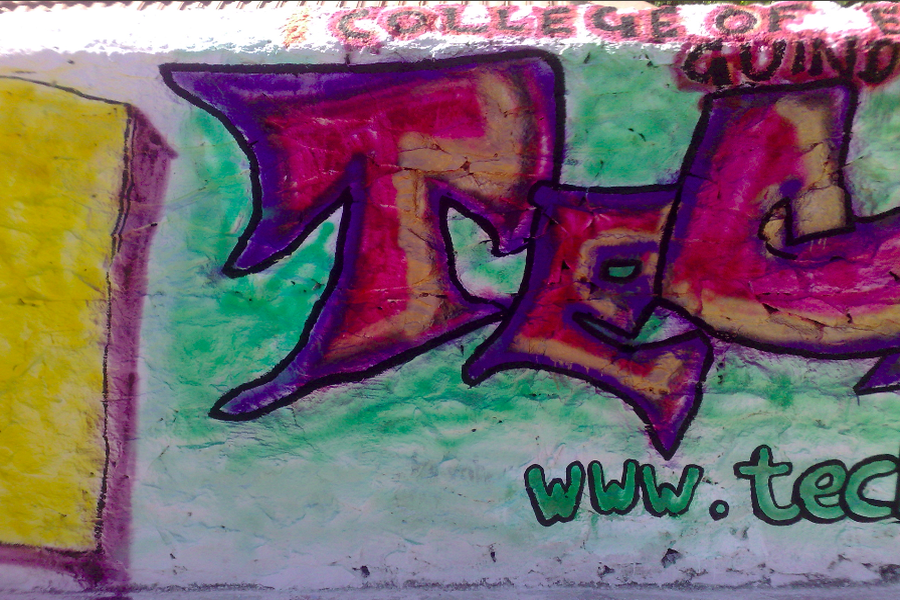 COLLEGE OF E
GUIND
TeC
www.tec